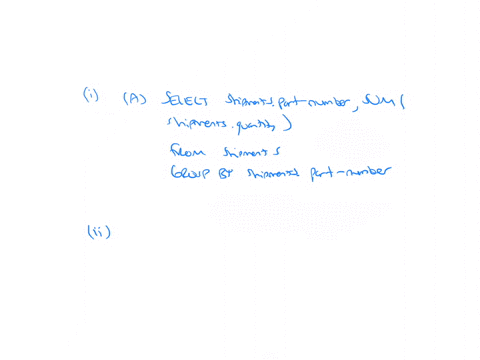 (i) (A) SELECT shipments.part-number, SUM(
shipments.quantity)
FROM shipments
GROUP BY shipments part-number
(ii)